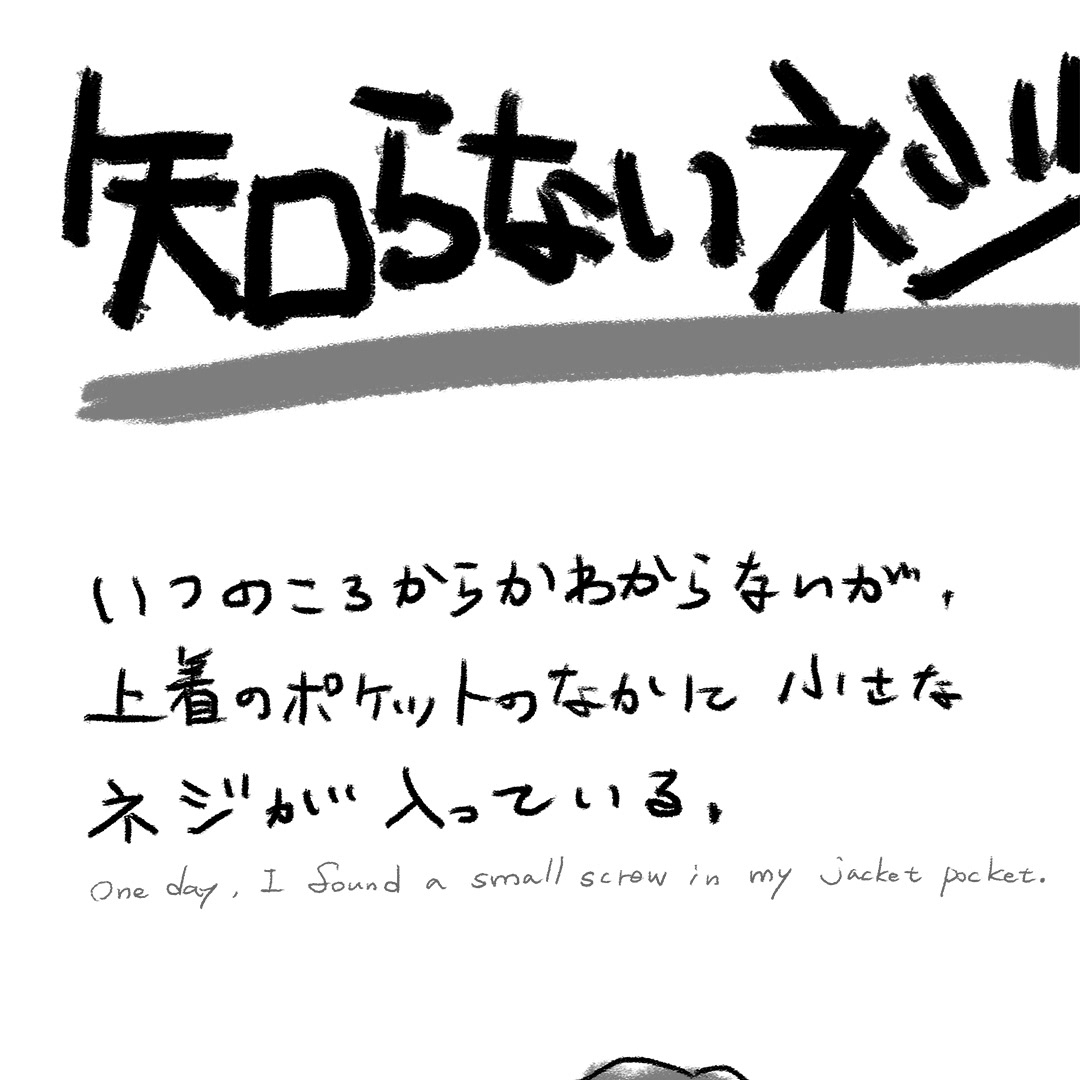 知らないネジ
いつのころからかわからないが,
上着のポケットのなかに 小さな
ネジが 入っている,
One day, I found a small screw in my jacket pocket.